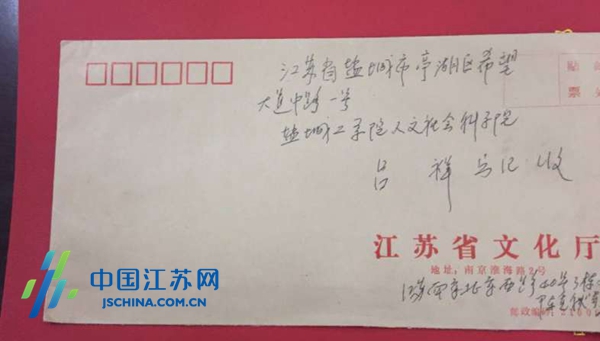 江苏省盐城市亭湖区希望
大道中路一号
盐城工学院人文社会科学院
吕 祥 书记 收
贴
票
江苏省文化厅
地址:南京淮海路2号
江苏南京北京西路
邮政编码:
中国江苏网
JSCHINA.COM.CN